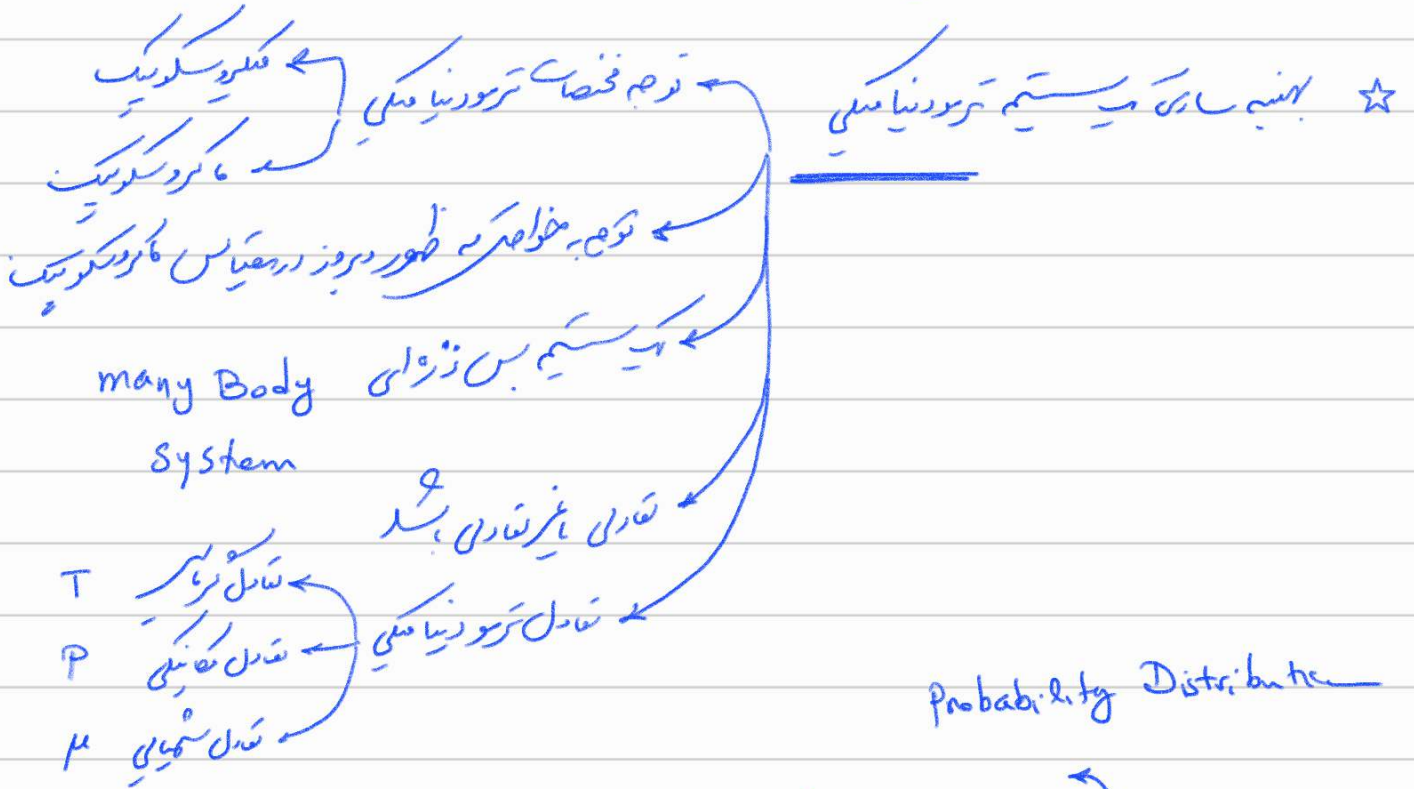 ☆ بهینه سازی یک سیستم ترمودینامیکی
توجه مختصات ترمودینامیکی
میکروسکوپیک
ماکروسکوپیک
توجه به خواص که ظهور و بروز در مقیاس ماکروسکوپیک
یک سیستم بس ذره‌ای many Body
System
تعادلی یا غیر تعادلی باشد
تعادل ترمودینامیکی
تعادل گرمایی T
تعادل مکانیکی P
تعادل شیمیایی μ
Probability Distribution